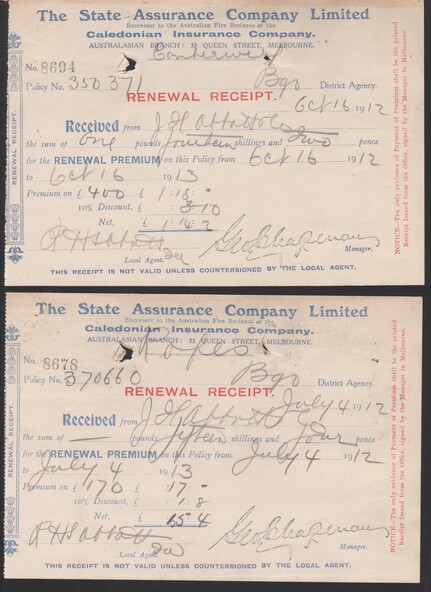 The State Assurance Company Limited
Successor to the Australian Fire Business of the
Caledonian Insurance Company.
AUSTRALASIAN BRANCH: 33 QUEEN STREET, MELBOURNE.
Camberwell
No. 8694
Policy No. 350371 Bgo District Agency.
RENEWAL RECEIPT.
Oct 16 1912
Received from J H Abbott
the sum of One pounds fourteen shillings and two pence
for the RENEWAL PREMIUM on this Policy from Oct 16 1912
to Oct 16 1913
Premium on £ 400 £ 1 : 18 : -
10% Discount, £ : 3 10
Net, £ 1 : 14 : 2
R H S Abbott Geo Chapman
Local Agent. Manager.
THIS RECEIPT IS NOT VALID UNLESS COUNTERSIGNED BY THE LOCAL AGENT.
RENEWAL RECEIPT.
NOTICE—The only evidence of Payment of Premium shall be the printed
Receipt issued from the Office, signed by the Manager in Melbourne.
The State Assurance Company Limited
Successor to the Australian Fire Business of the
Caledonian Insurance Company.
AUSTRALASIAN BRANCH: 33 QUEEN STREET, MELBOURNE.
No. 8678
Policy No. 370660 Bgo District Agency.
RENEWAL RECEIPT.
July 4 1912
Received from J H Abbott
the sum of — pounds fifteen shillings and four pence
for the RENEWAL PREMIUM on this Policy from July 4 1912
to July 4 1913
Premium on £ 170 £ 17 : -
10% Discount, £ 1 : 8
Net, £ 15 4
R H S Abbott Geo Chapman
Local Agent. Manager.
THIS RECEIPT IS NOT VALID UNLESS COUNTERSIGNED BY THE LOCAL AGENT.
RENEWAL RECEIPT.
NOTICE—The only evidence of Payment of Premium shall be the printed
Receipt issued from the Office, signed by the Manager in Melbourne.